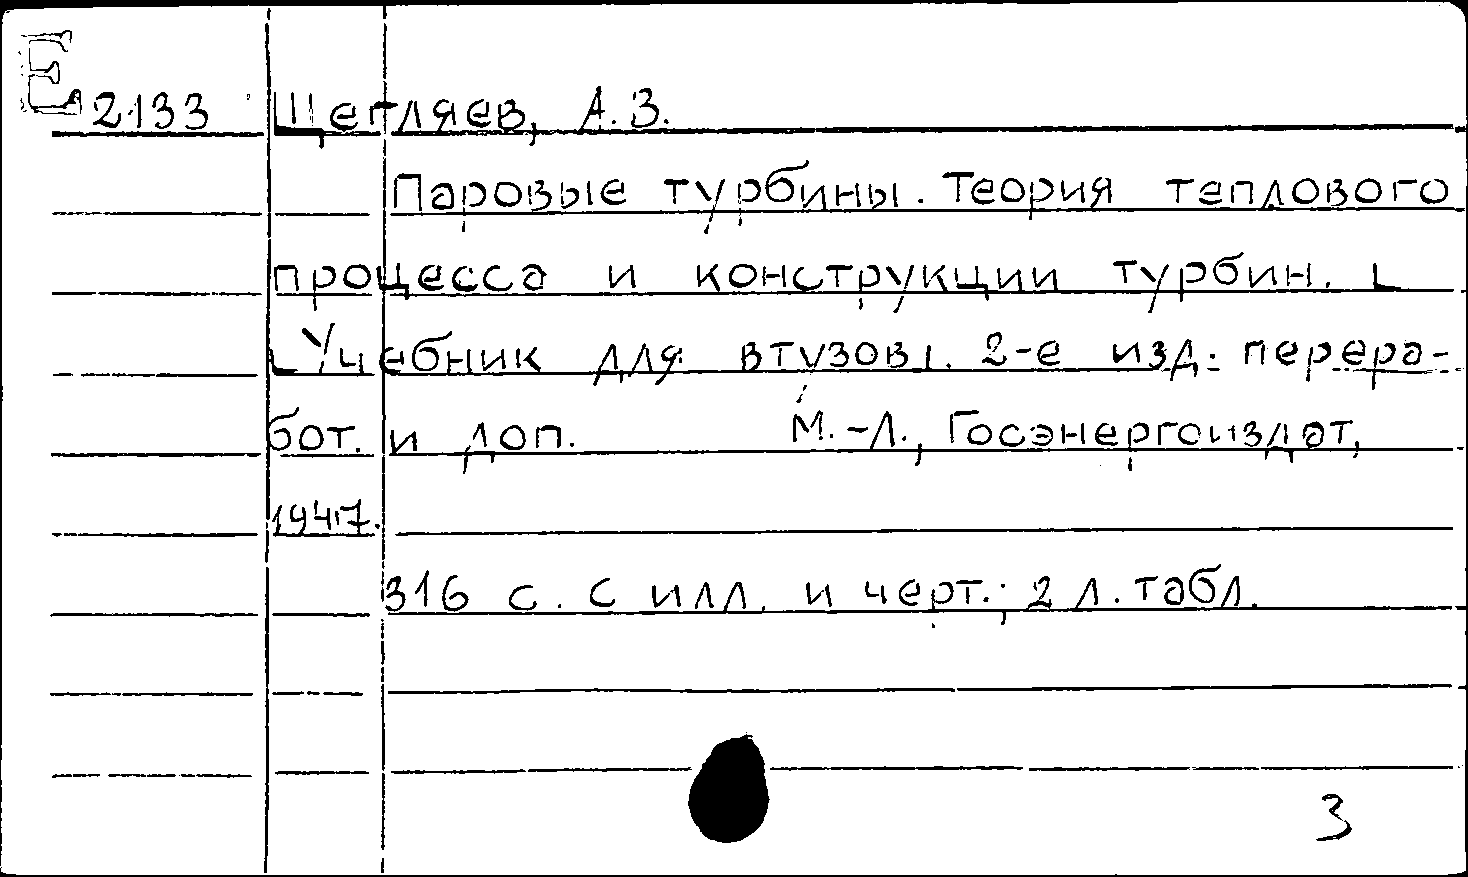 Е 2133 Щегляев, А.В.
Паровые турбины. Теория теплового
процесса и конструкции турбин. [
[Учебник для втузов]. 2-е изд. перера-
бот. и доп. М.-Л., Госэнергоиздат,
1947.
316 с. с илл. и черт.; 2 л. табл.
3